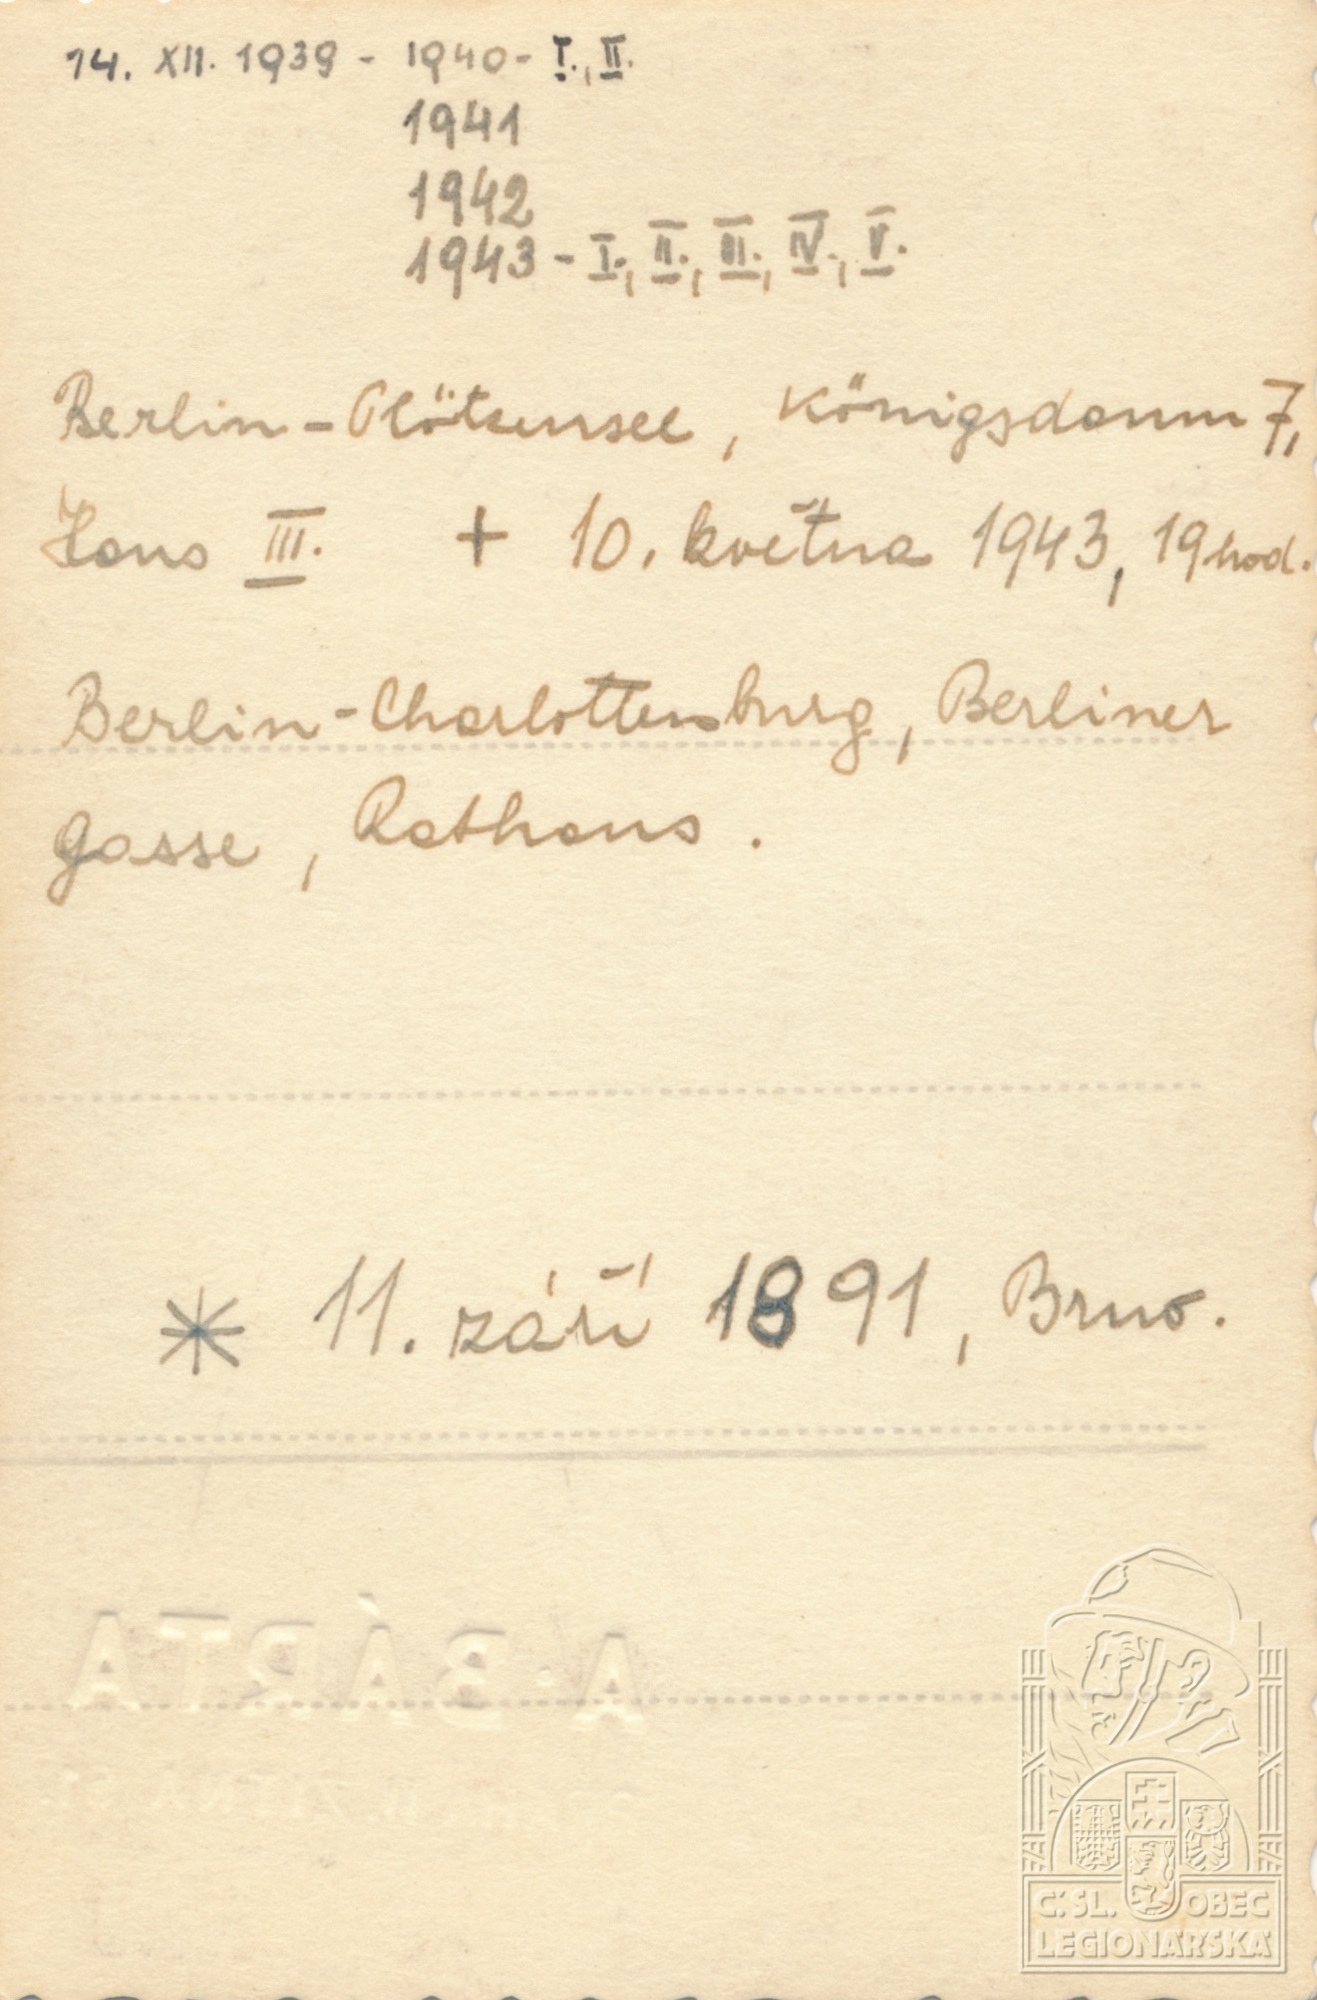 14. XII. 1939 - 1940 - I., II.
1941
1942
1943 - I., II., III., IV., V.
Berlin - Plötzensee, Königsdamm 7,
Haus III. + 10. května 1943, 19 hod.
Berlin - Charlottenburg, Berliner
Gasse, Rathaus.
* 11. září 1891, Brno.
A. BÁRTA
ČSL. OBEC
LEGIONÁŘSKÁ